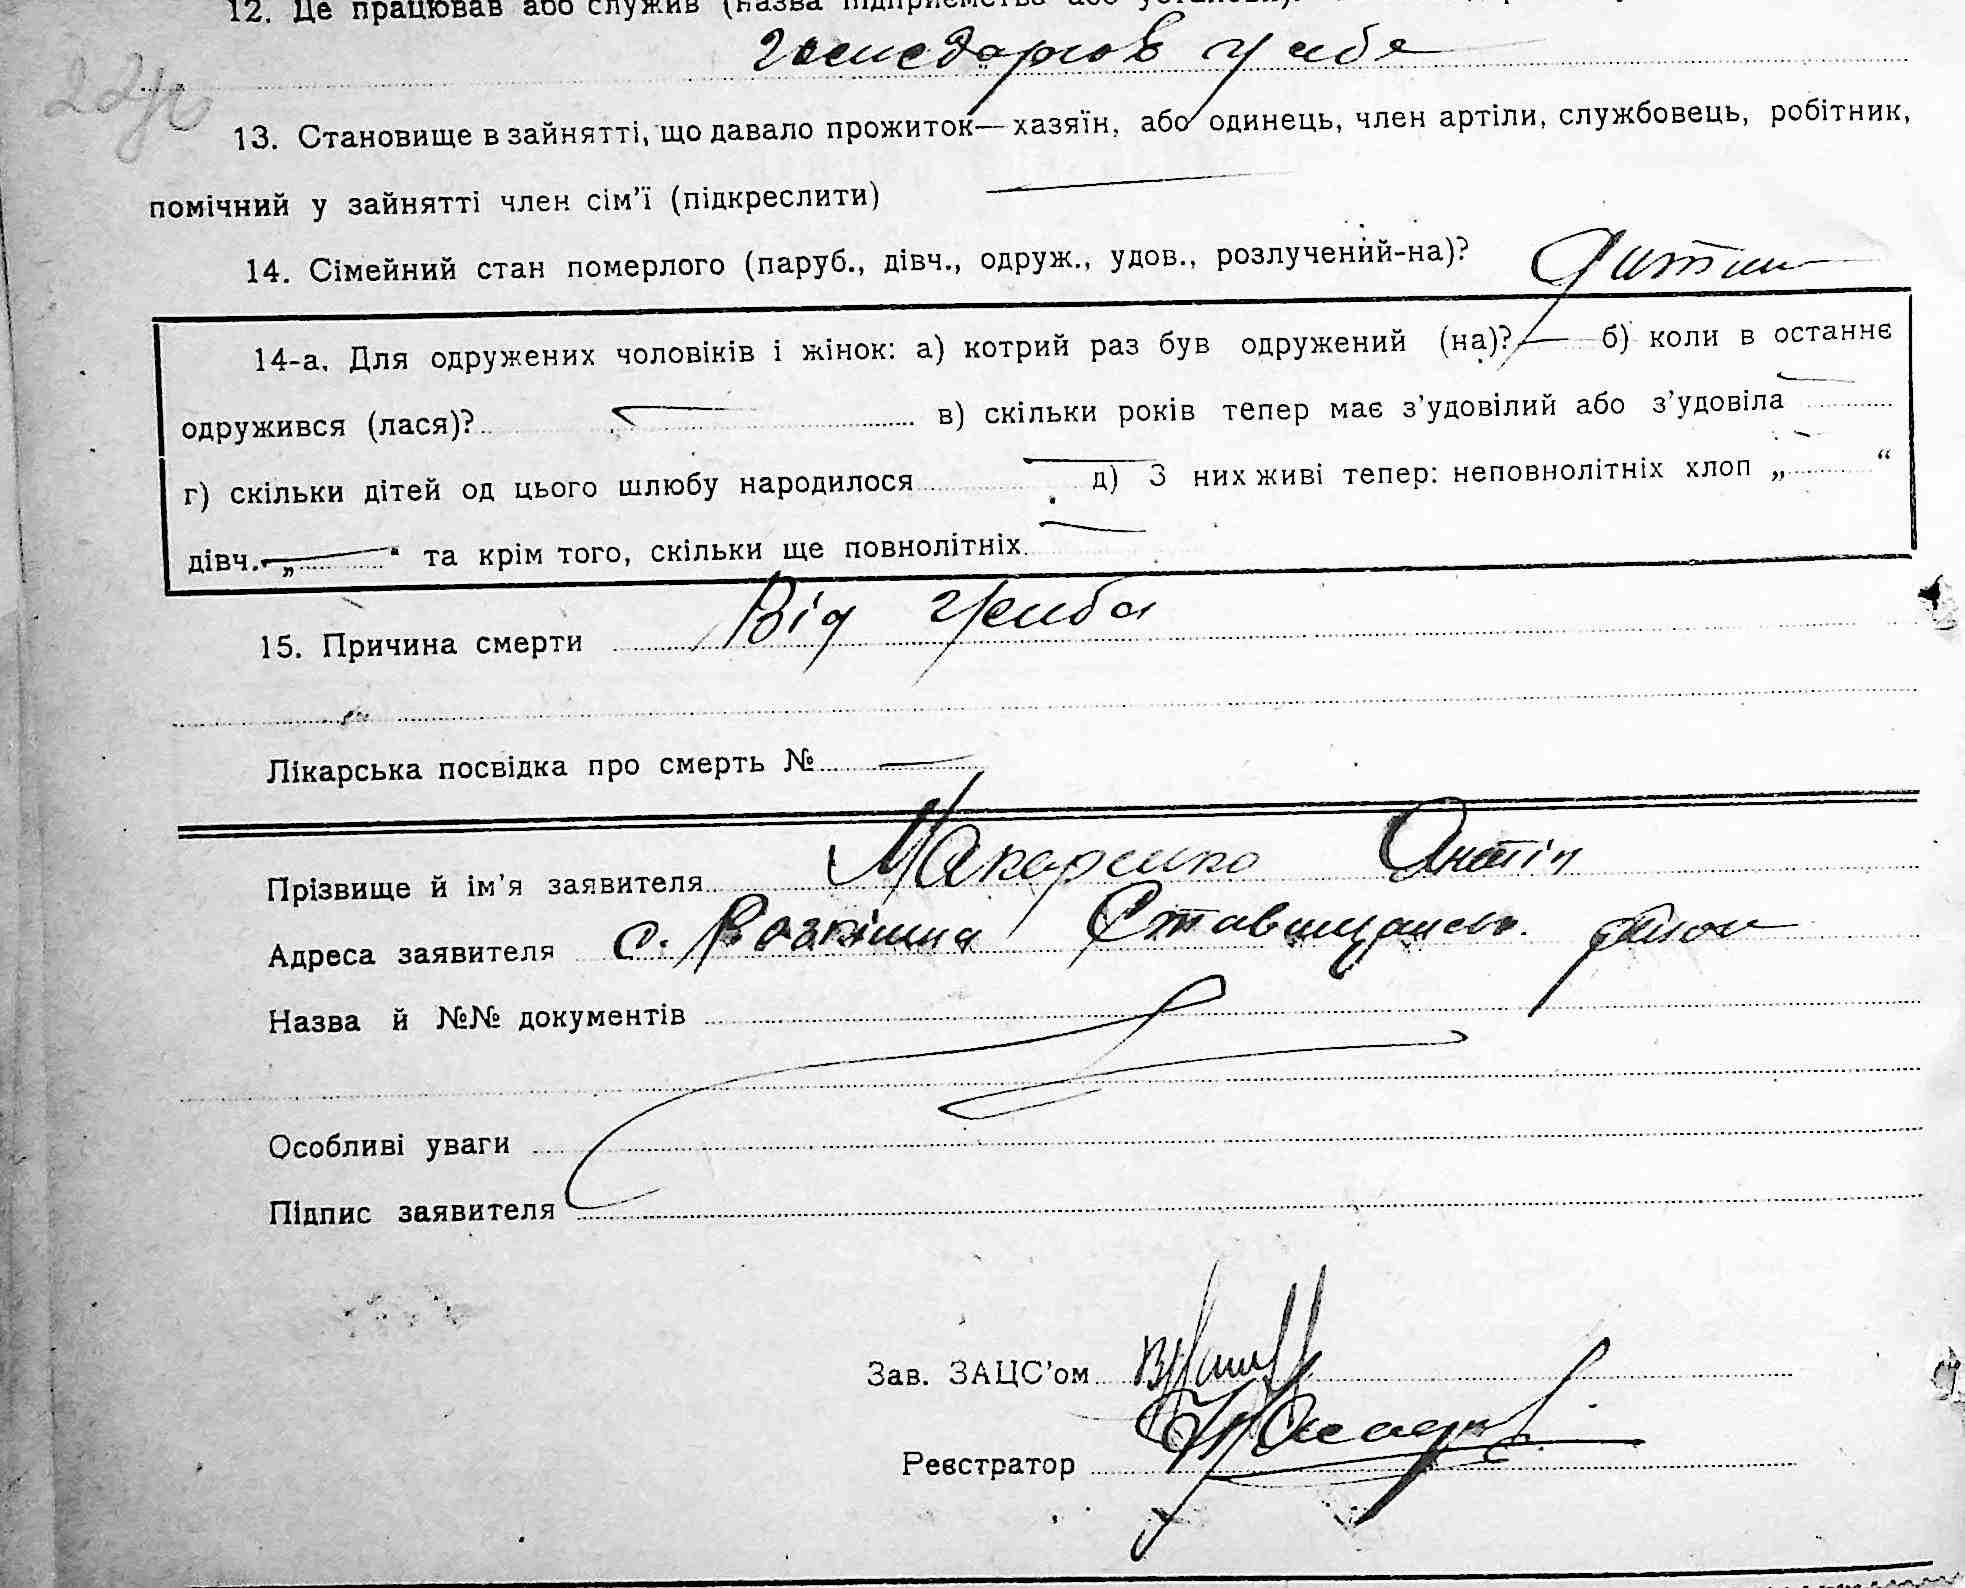 12. Де працював або служив (назва підприємства або установи).
господарюв у себе
13. Становище в зайнятті, що давало прожиток— хазяїн, або одинець, член артіли, службовець, робітник,
помічний у зайнятті член сім'ї (підкреслити) —
14. Сімейний стан померлого (паруб., дівч., одруж., удов., розлучений-на)? Дитина
14-а. Для одружених чоловіків і жінок: а) котрий раз був одружений (на)? — б) коли в останнє
одружився (лася)? — в) скільки років тепер має з'удовілий або з'удовіла —
г) скільки дітей од цього шлюбу народилося — д) З них живі тепер: неповнолітніх хлоп „ — “
дівч. „ — “ та крім того, скільки ще повнолітніх. —
15. Причина смерти Від
Лікарська посвідка про смерть № —
Прізвище й ім'я заявителя Макаренко Антін
Адреса заявителя с. Розкішна Ставищанськ. район
Назва й №№ документів
Особливі уваги
Підпис заявителя
Зав. ЗАЦС'ом
Реєстратор